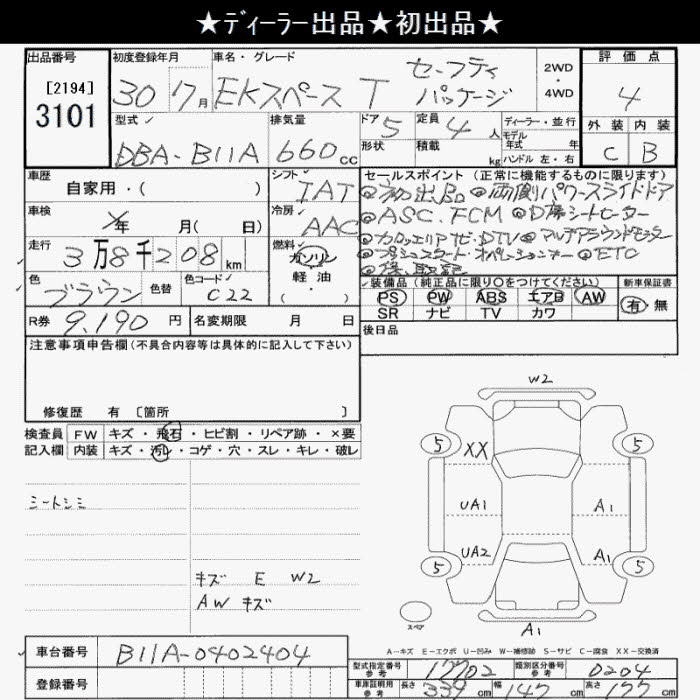 ★ディーラー出品★初出品★
出品番号 初度登録年月 車名・グレード 評価点
[2194]
3101
30 7月 EKスペース T セーフティパッケージ
2WD
・
4WD
4
型式 排気量 ドア 定員 ディーラー・並行
DBA-B11A 660cc 5 4人
モデル年式 年
形状 積載 kg ハンドル 左・右
外装 内装
C B
車歴 自家用・( )
シフト IAT
セールスポイント (正常に機能するものに限ります)
◎初出品 ◎両側パワースライドドア
車検 年 月( 日)
冷房 AAC
◎ASC.FCM ◎D席シートヒーター
◎カロッエリアナビ・DTV ◎マルチアラウンドモニター
走行 3万8千208km
燃料 ガソリン
軽油
( ・ )
◎プッシュスタート・オペレーションキー ◎ETC
◎保、取、記
色 ブラウン 色替 色コード C22
装備品 (純正品に限り○をつけてください) 新車保証書
PS PW ABS エアB AW 有・無
SR ナビ TV カワ
R券 9,190円 名変期限 月 日
後日品
注意事項申告欄(不具合内容等は具体的に記入して下さい)
修復歴 有 〔箇所 〕
検査員 FW キズ・飛石・ヒビ割・リペア跡・×要
記入欄 内装 キズ・汚レ・コゲ・穴・スレ・キレ・破レ
シートシミ
キズ E W2
AW キズ
W2
5 XX 5
UA1 A1
UA2 A1
5 5
スペア
A1
A-キズ E-エクボ U-凹み W-補修跡 S-サビ C-腐食 XX-交換済
車台番号 B11A-0402404
型式指定番号 参考 17702 類別区分番号 参考 0204
登録番号
車庫証明用 参考 長さ 339cm 幅 147cm 高さ 177cm